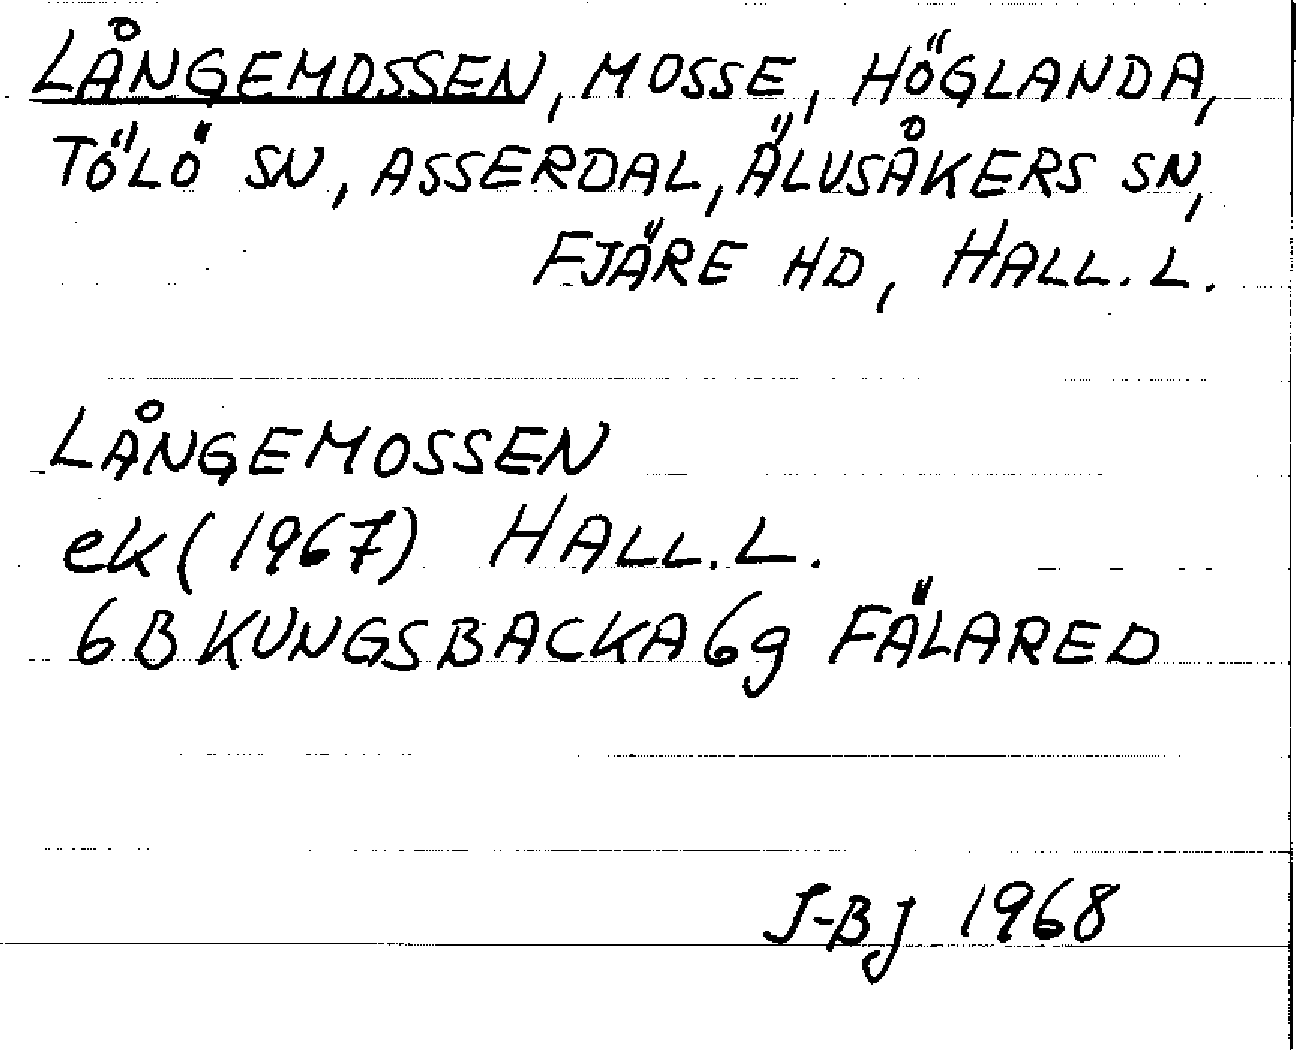 LÅNGEMOSSEN, MOSSE, HÖGLANDA,
TÖLÖ SN, ASSERDAL, ÄLVSÅKERS SN,
FJÄRE HD, HALL. L.
LÅNGEMOSSEN
ek (1967) HALL. L.
6B KUNGSBACKA 6g FÄLARED
J-Bj 1968